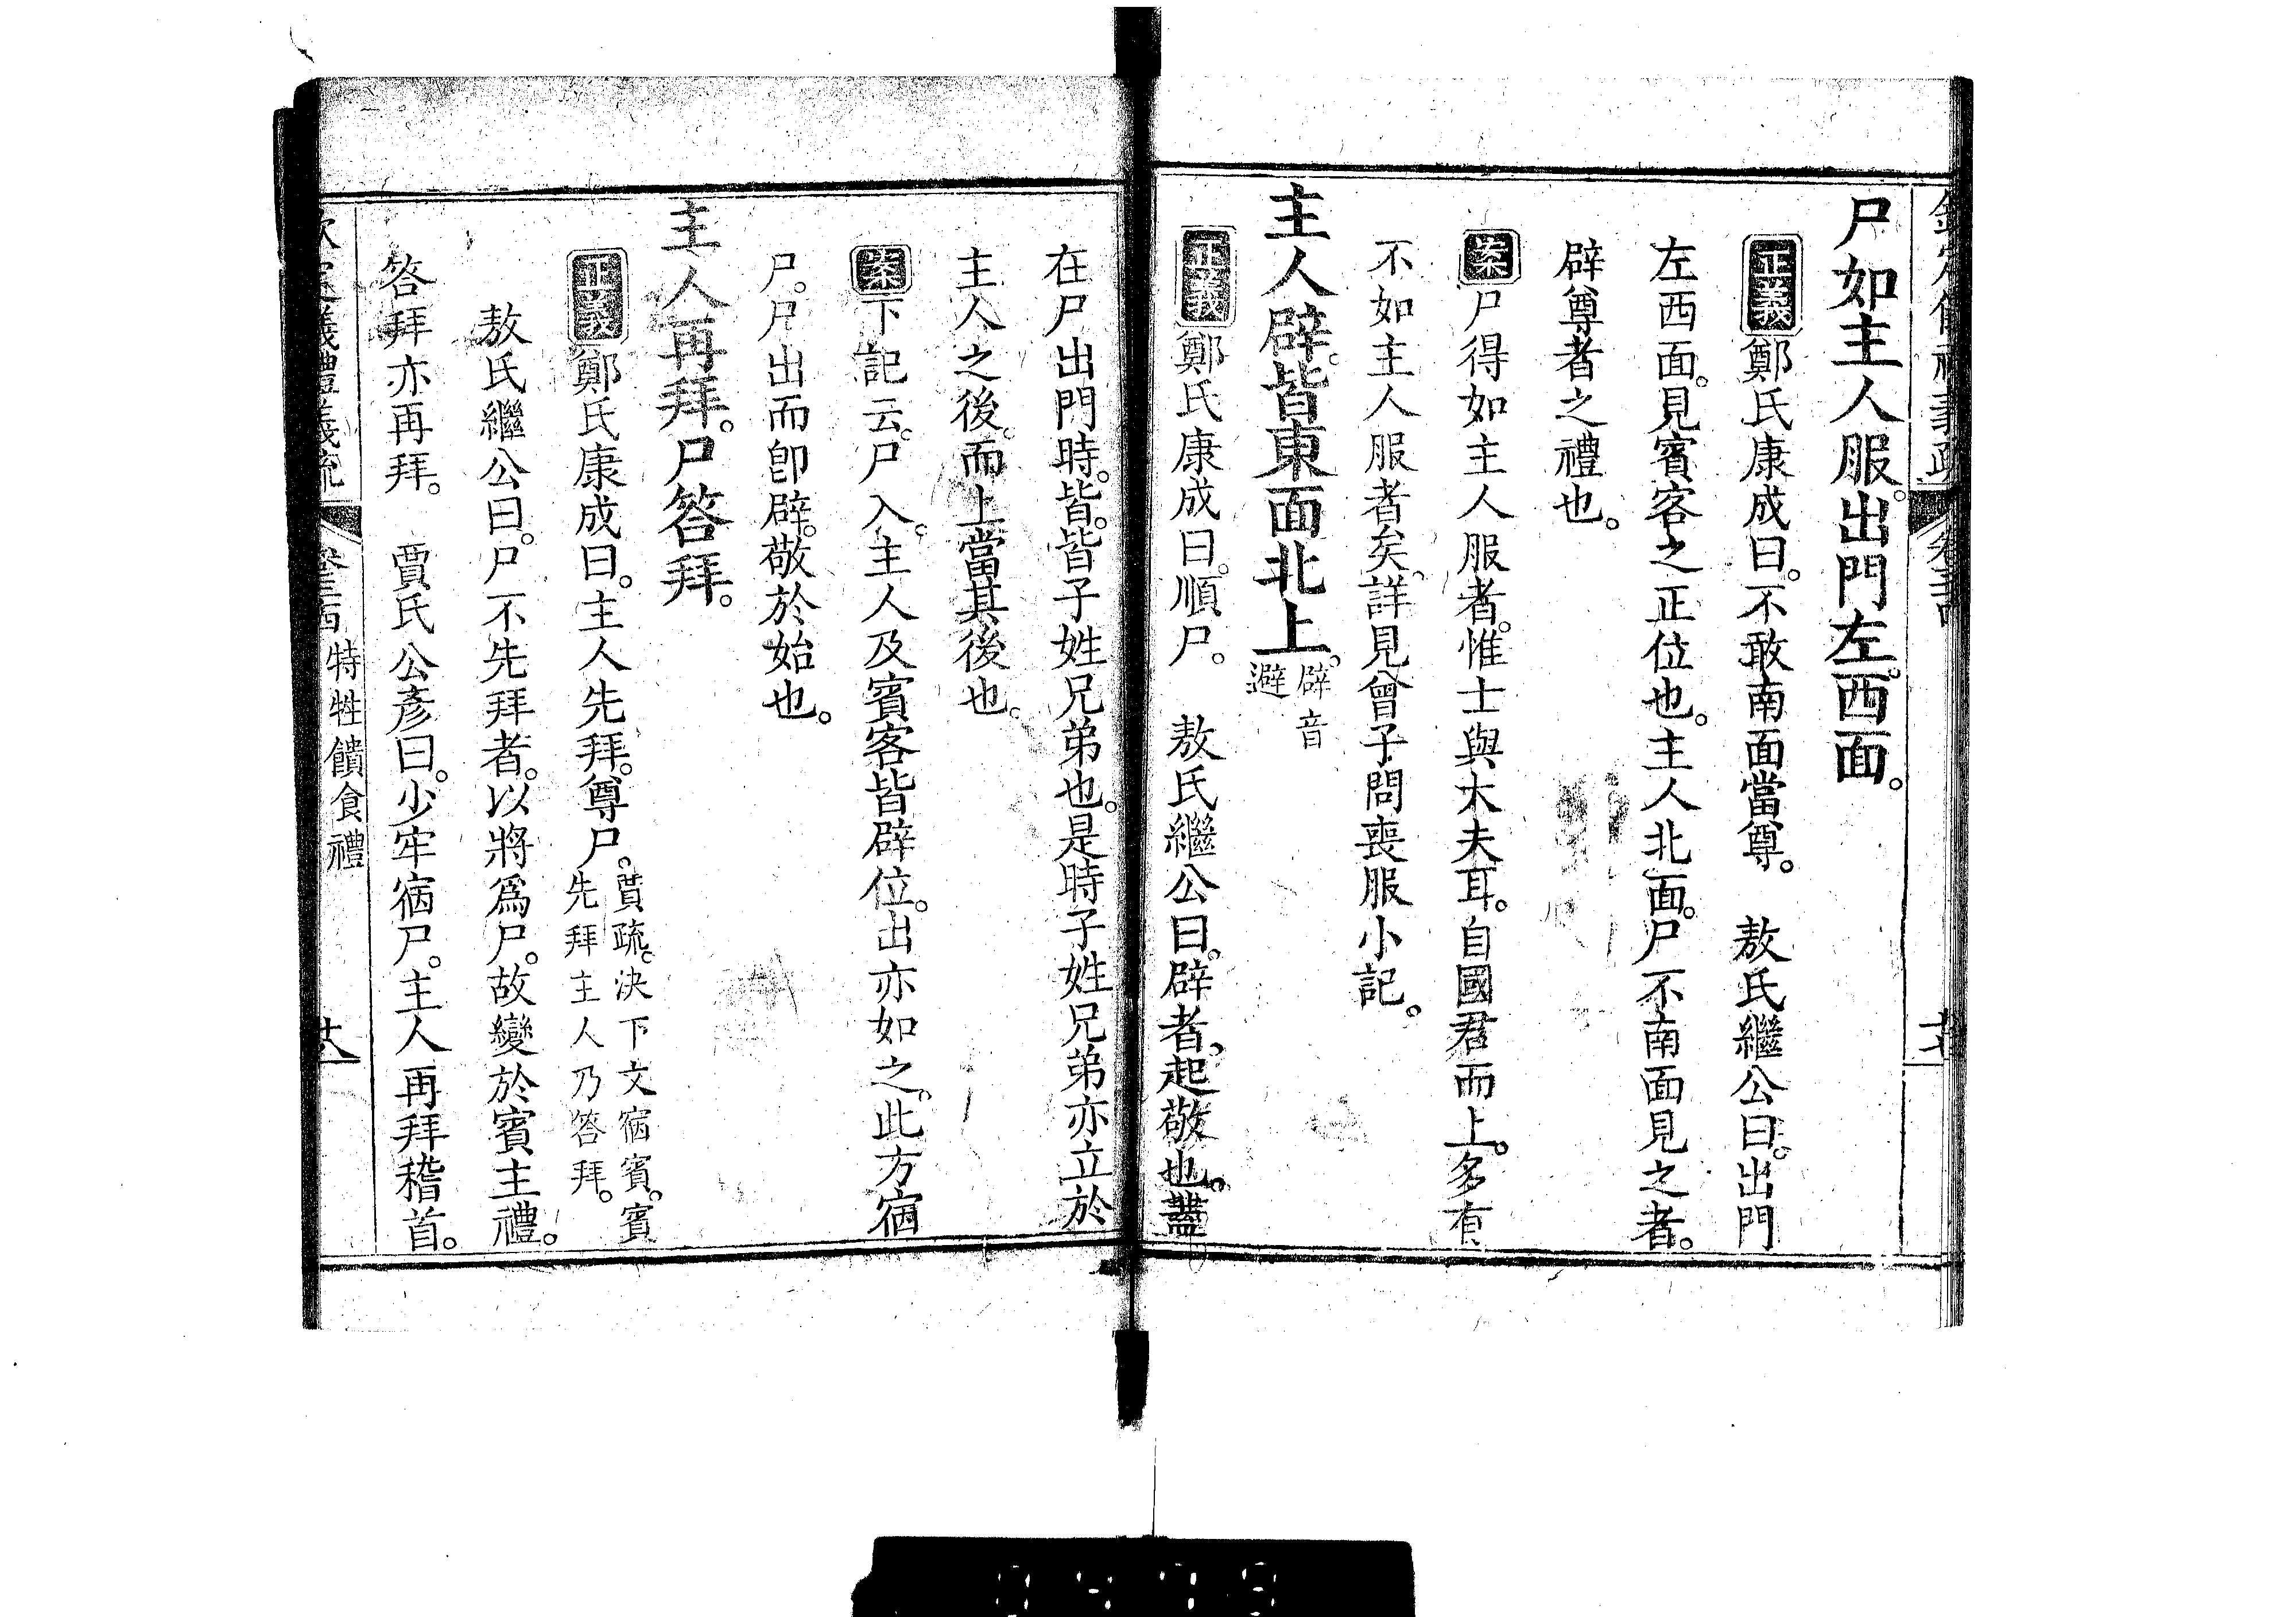 尸如主人服。出門左。西面。
正義鄭氏康成曰。不敢南面當尊。　敖氏繼公曰。出門
左西面。見賓客之正位也。主人北面。尸不南面見之者。
辟尊者之禮也。
案尸得如主人服者。惟士與大夫耳。自國君而上。多有
不如主人服者矣。詳見曾子問喪服小記。
主人辟。皆東面北上。辟音避
正義鄭氏康成曰。順尸。　敖氏繼公曰。辟者。起敬也。蓋
在尸出門時。皆。皆子姓兄弟也。是時子姓兄弟亦立於
主人之後。而上當其後也。
案下記云。尸入。主人及賓客皆辟位。出亦如之。此方宿
尸。尸出而卽辟。敬於始也。
主人再拜。尸答拜。
正義鄭氏康成曰。主人先拜。尊尸。賈疏。決下文宿賓。賓先拜主人乃答拜。
敖氏繼公曰。尸不先拜者。以將爲尸。故變於賓主禮。
答拜亦再拜。　賈氏公彥曰。少牢宿尸。主人再拜稽首。
特牲饋食禮